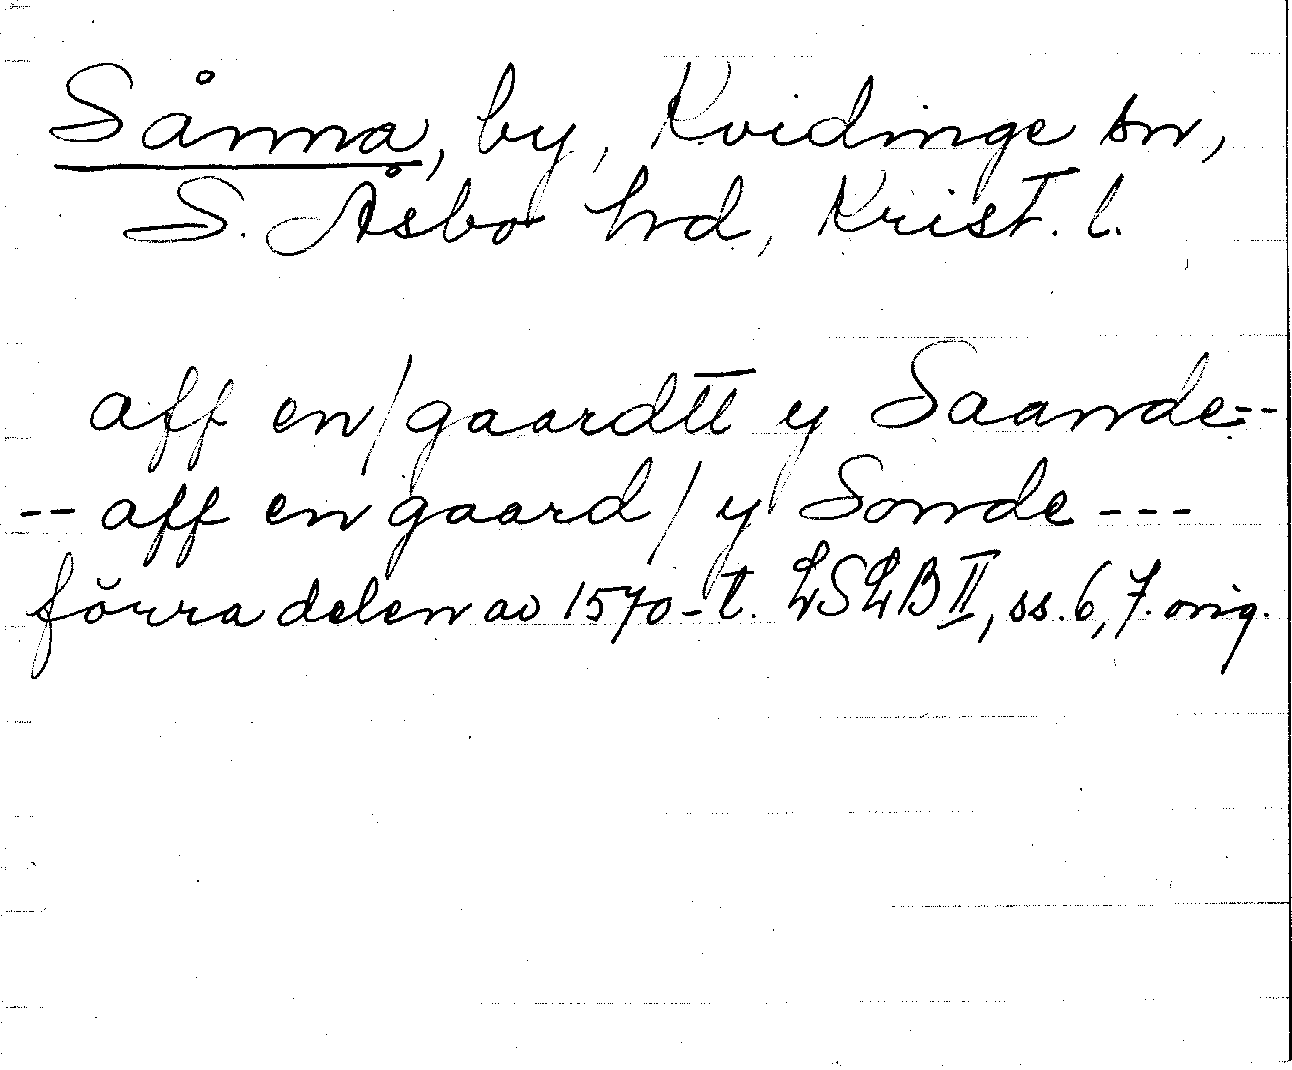 Sånna, by, Kvidinge sn,
S. Åsbo hd, Krist. l.
aff en / gaardtt y Saande --
-- aff en gaard / y Sonde ---
förra delen av 1570-t. LSLB II, ss. 6, 7. orig.